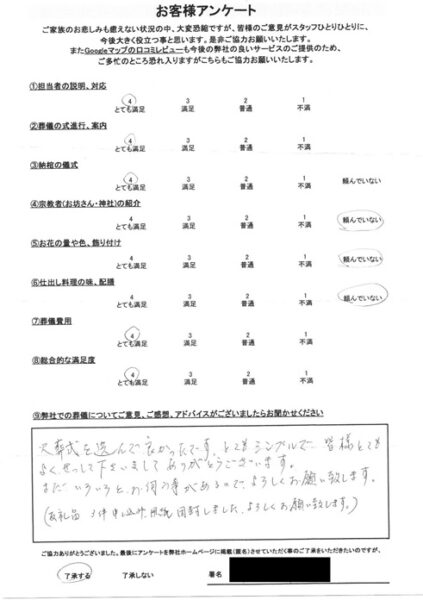 お客様アンケート
ご家族のお悲しみも癒えない状況の中、大変恐縮ですが、皆様のご意見がスタッフひとりひとりに、
今後大きく役立つ事と思います。是非ご協力お願いいたします。
またGoogleマップの口コミレビューも今後の弊社の良いサービスのご提供のため、
ご多忙のところ恐れ入りますがこちらもご協力お願いいたします。
①担当者の説明、対応
4 3 2 1
とても満足 満足 普通 不満
②葬儀の式進行、案内
4 3 2 1
とても満足 満足 普通 不満
③納棺の儀式
4 3 2 1
とても満足 満足 普通 不満 頼んでいない
④宗教者(お坊さん・神社)の紹介
4 3 2 1
とても満足 満足 普通 不満 頼んでいない
⑤お花の量や色、飾り付け
4 3 2 1
とても満足 満足 普通 不満 頼んでいない
⑥仕出し料理の味、配膳
4 3 2 1
とても満足 満足 普通 不満 頼んでいない
⑦葬儀費用
4 3 2 1
とても満足 満足 普通 不満
⑧総合的な満足度
4 3 2 1
とても満足 満足 普通 不満
⑨弊社での葬儀についてご意見、ご感想、アドバイスがございましたらお聞かせください
火葬式を選んで良かったです。とてもシンプルで、皆様とても
よくせって下さいましてありがとうございます。
まだいろいろと、お伺い事があるので、よろしくお願い致します。
(お礼品 1件申込み用紙も同封しました、よろしくお願い致します。)
ご協力ありがとうございました。最後にアンケートを弊社ホームページに掲載(匿名)させていただく事のご了承をいただきたいのですが、
了承する 了承しない 署名